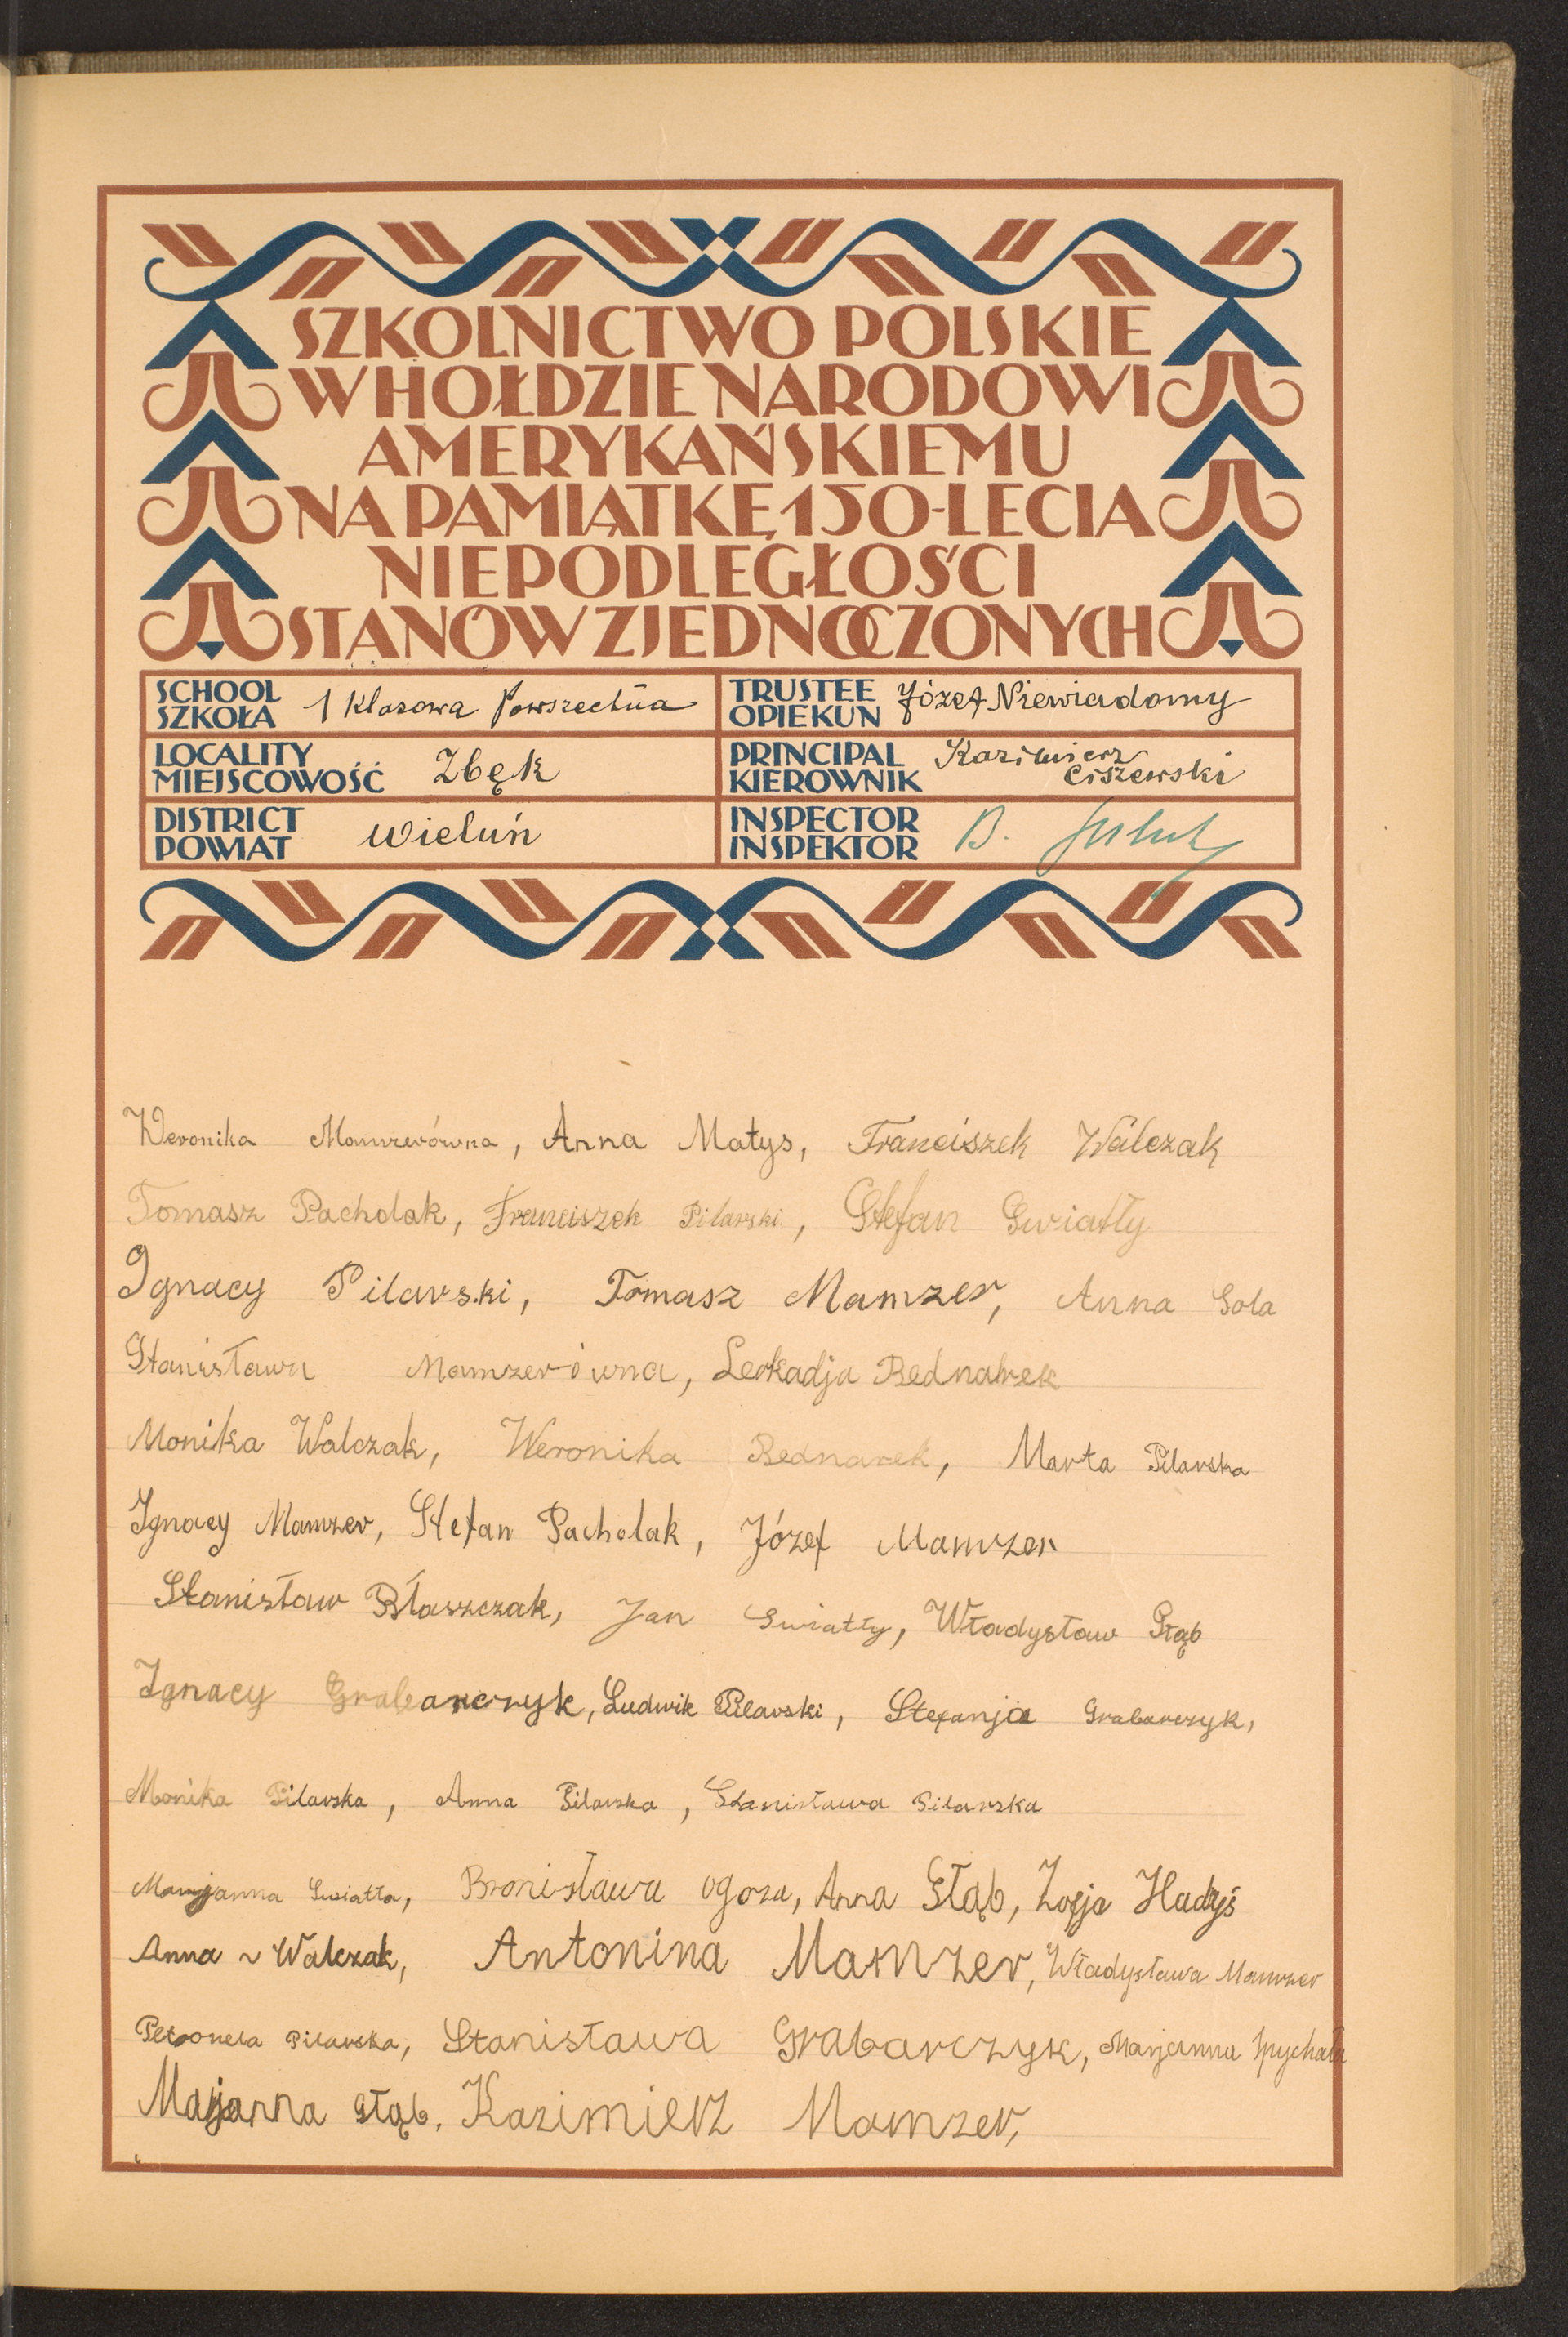 SZKOLNICTWO POLSKIE
W HOŁDZIE NARODOWI
AMERYKAŃSKIEMU
NA PAMIĄTKĘ 150-LECIA
NIEPODLEGŁOŚCI
STANÓW ZJEDNOCZONYCH
SCHOOL
SZKOŁA 1 Klasowa Powszechna
TRUSTEE
OPIEKUN Józef Niewiadomy
LOCALITY
MIEJSCOWOŚĆ Zbęk
PRINCIPAL
KIEROWNIK Kazimierz
Ciszewski
DISTRICT
POWIAT Wieluń
INSPECTOR
INSPEKTOR B.
Weronika Mamzerówna, Anna Matys, Franciszek Walczak
Tomasz Pacholak, Franciszek Pilarski, Stefan Swiatły
Ignacy Pilarski, Tomasz Mamzer, Anna Sola
Stanisława Mamzerówna, Leokadja Bednarek
Monika Walczak, Weronika Bednarek, Marta Pilarska
Ignacy Mamzer, Stefan Pacholak, Józef Mamzer
Stanisław Błaszczak, Jan Swiatły, Władysław Głąb
Ignacy Grabarczyk, Ludwik Pilarski, Stefanja Grabarczyk,
Monika Pilarska, Anna Pilarska, Stanisława Pilarska
Marjanna Swiatła, Bronisława Ogoza, Anna Głąb, Zofja Hadyś
Anna Walczak, Antonina Mamzer, Władysława Mamzer
Petronela Pilarska, Stanisława Grabarczyk, Marjanna Spychała
Marjanna Głąb, Kazimierz Mamzer,